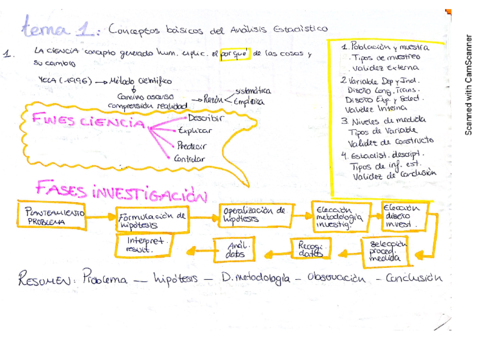 tema 1: Conceptos básicos del Análisis Estadístico
1. LA CIENCIA: concepto generado hum. explic. el por qué de las cosas y
su cambio.
YELA (1996) → Método Científico
Camino ascenso
comprensión realidad → Razón
sistemática
Empírica
FINES CIENCIA
Describir
Explicar
Predecir
Controlar
1. Población y muestra
Tipos de muestreo
Validez externa
2. Variable Dep y Ind.
Diseño Long. Trans.
Diseño Exp y Select.
Validez Interna
3 Niveles de medida
Tipos de Variable
Validez de constructo
4. Estadíst. descript.
Tipos de inf. est.
Validez de Conclusión
FASES INVESTIGACIÓN
PLANTEAMIENTO
PROBLEMA
Formulación de
hipótesis
Operalización de
hipótesis
Elección
metodología
investig.
Elección
diseño
invest.
Selección
proced.
medida
Recog.
datos
Anál.
datos
Interpret.
result.
RESUMEN: Problema — hipótesis — D. metodología — Observación — Conclusión
Scanned with CamScanner